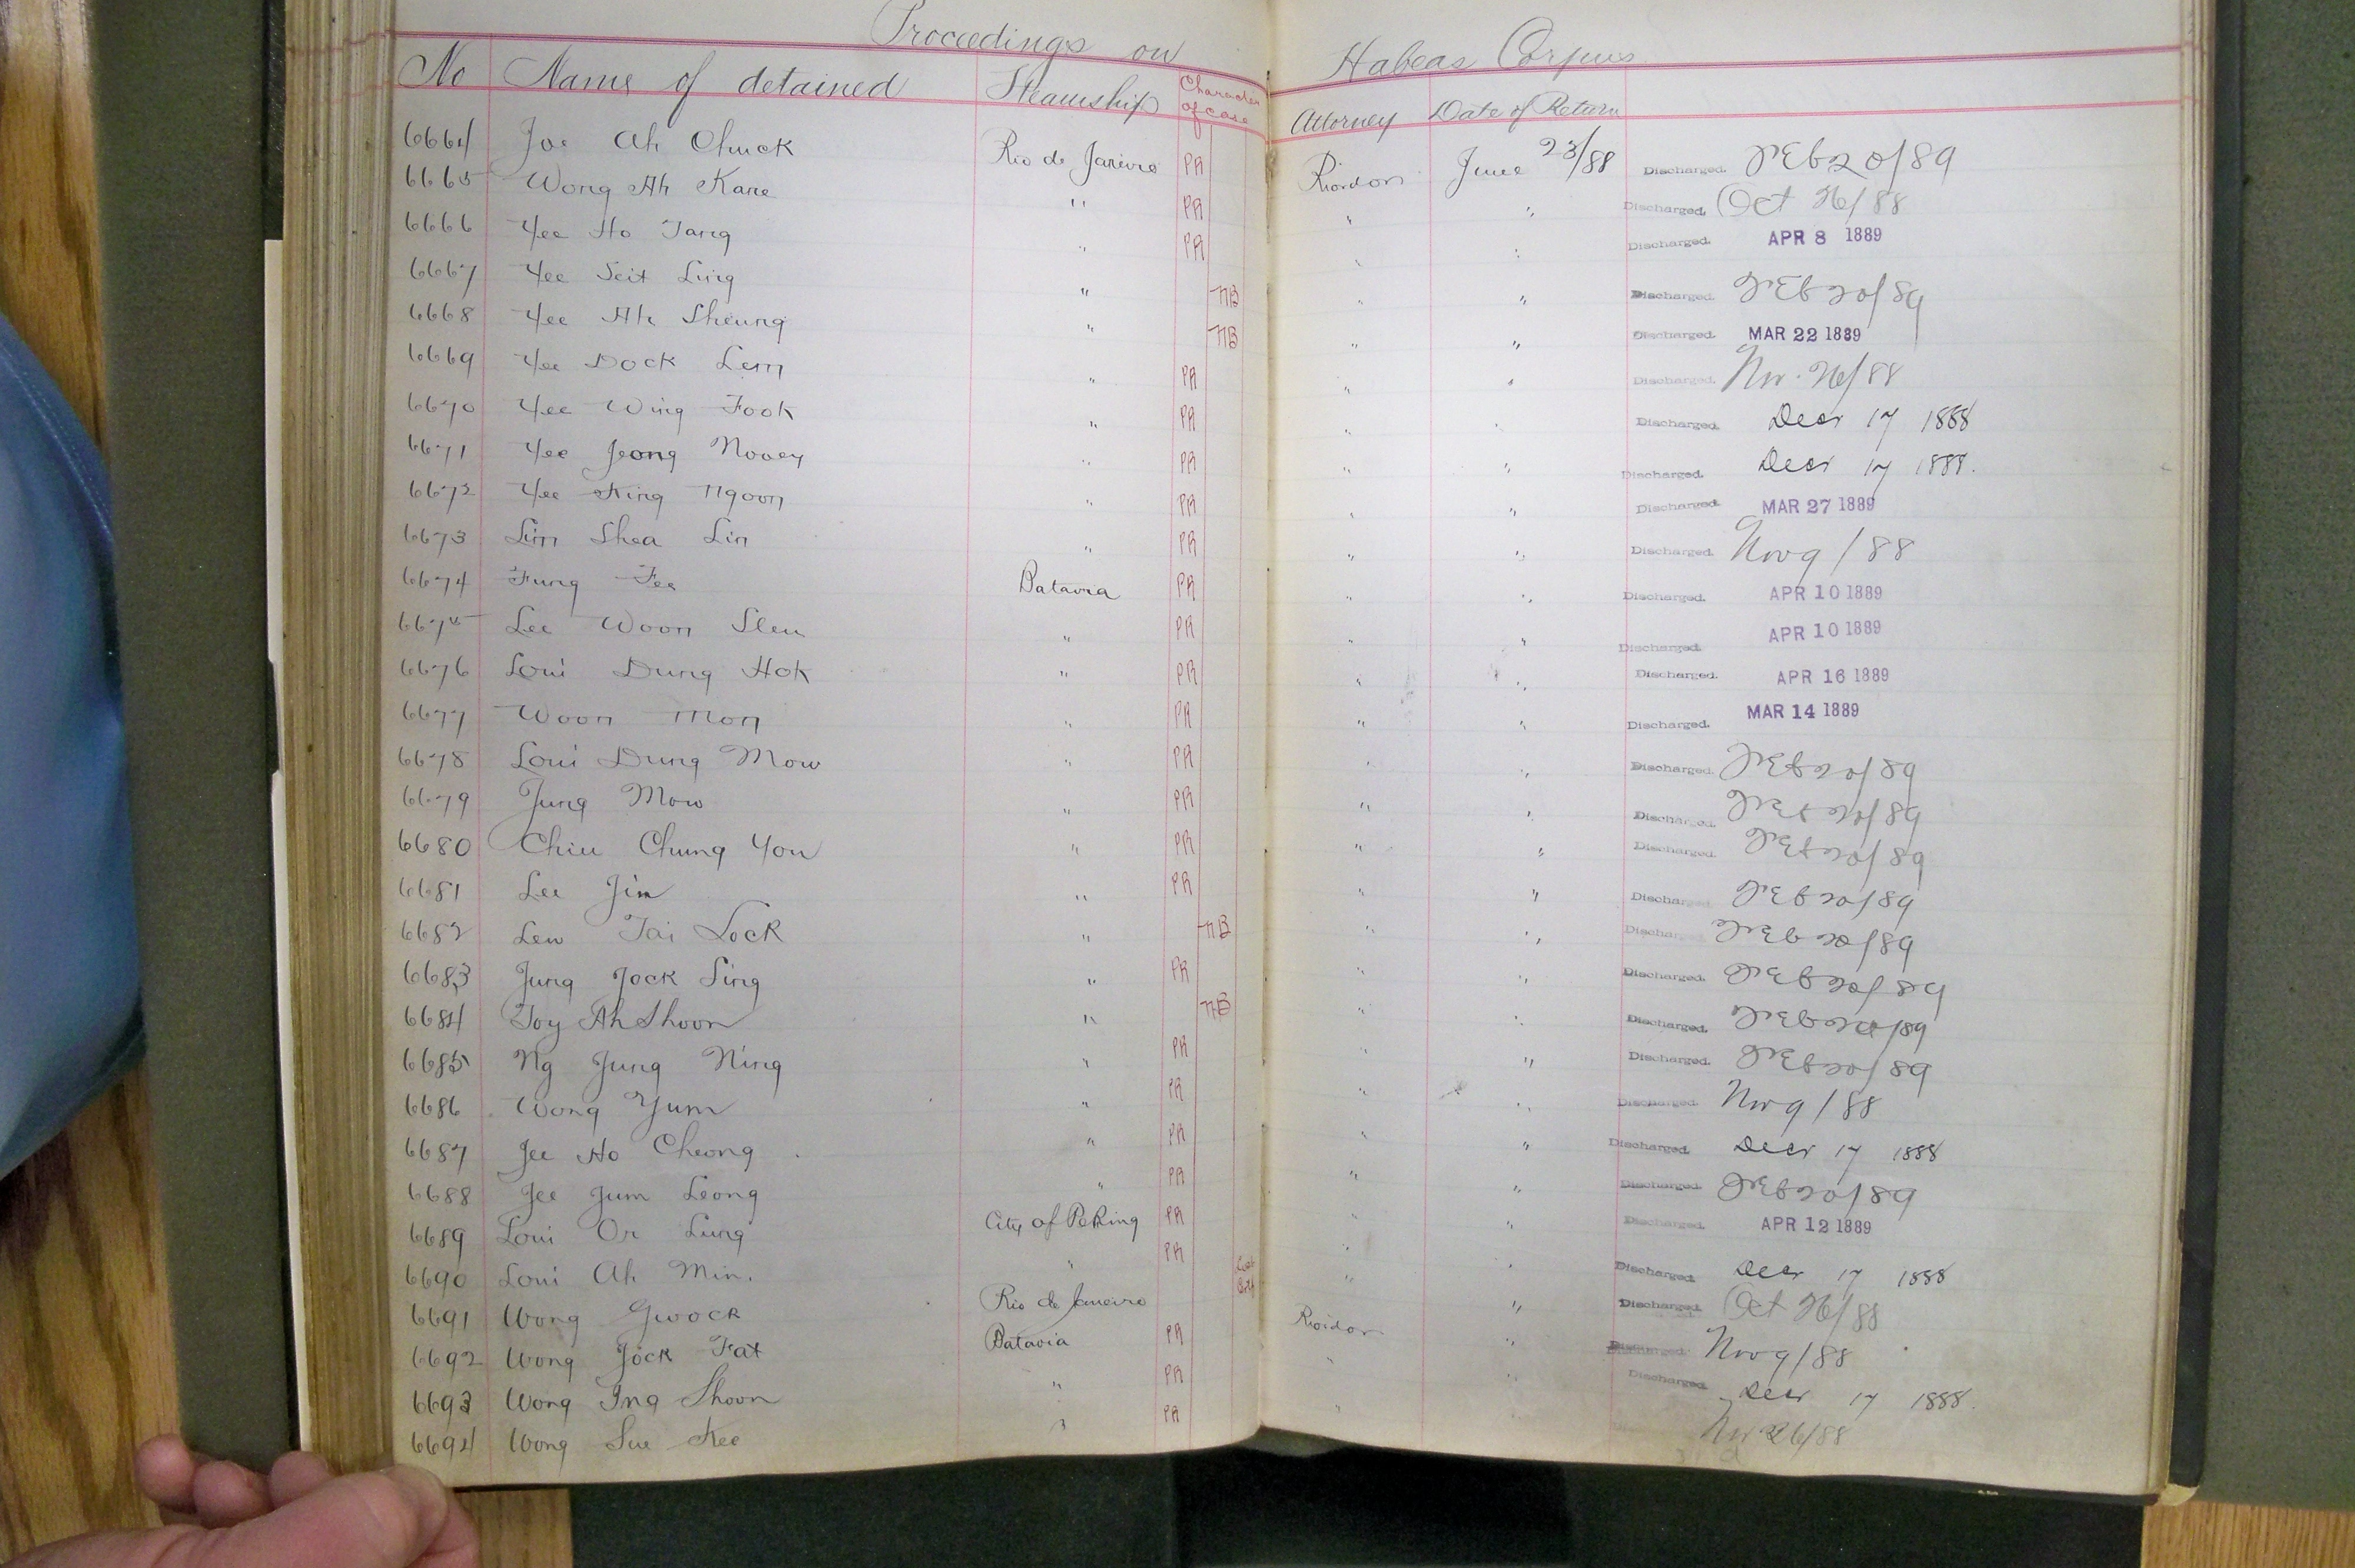 Proceedings on Habeas Corpus
No Name of detained Steamship Character of case Attorney Date of Return
6664 Joe Ah Chuck Rio de Janeiro PR Riordon June 23/88 Discharged. FEB 20/89
6665 Wong Ah Kane " PR " " Discharged. Oct 26/88
6666 Yee Ho Tang " PR " " Discharged. APR 8 1889
6667 Yee Seit Ling " NB " " Discharged. FEB 20/89
6668 Yee Ah Sheung " NB " " Discharged. MAR 22 1889
6669 Yee Dock Lem " PR " " Discharged. Nov. 26/88
6670 Yee Wing Fook " PR " " Discharged. Decr 17 1888
6671 Yee Jeong Nooey " PR " " Discharged. Decr 17 1888.
6672 Yee King Ngoon " PR " " Discharged. MAR 27 1889
6673 Lim Shea Lin " PR " " Discharged. Nov 9/88
6674 Fung Fee Batavia PR " " Discharged. APR 10 1889
6675 Lee Woon Sleu " PR " " Discharged. APR 10 1889
6676 Loui Dung Hok " PR " " Discharged. APR 16 1889
6677 Woon Mon " PR " " Discharged. MAR 14 1889
6678 Loui Dung Mow " PR " " Discharged. FEB 20/89
6679 Jung Mow " PR " " Discharged. FEB 20/89
6680 Chiu Chung You " PR " " Discharged. FEB 20/89
6681 Lee Jim " PR " " Discharged FEB 20/89
6682 Lew Tai Lock " NB " " Dischar FEB 20/89
6683 Jung Jock Sing " PR " " Discharged. FEB 20/89
6684 Toy Ah Shoon " NB " " Discharged. FEB 20/89
6685 Ng Jung Ning " PR " " Discharged. FEB 20/89
6686 Wong Yum " PR " " Discharged. Nov 9/88
6687 Jee Ho Cheong " PR " " Discharged. Decr 17 1888
6688 Jee Jum Leong " PR " " Discharged. FEB 20/89
6689 Loui On Lung City of Peking PR " " Discharged. APR 12 1889
6690 Loui Ah Min. " PR " " Discharged. Decr 17 1888
6691 Wong Gwock Rio de Janeiro " " Discharged. Oct 26/88
6692 Wong Jock Fat Batavia PR Riordon " Discharged. Nov 9/88
6693 Wong Ing Shoon " PR " " Discharged. Decr 17 1888.
6694 Wong Sue Kee " PR " Nov 26/88